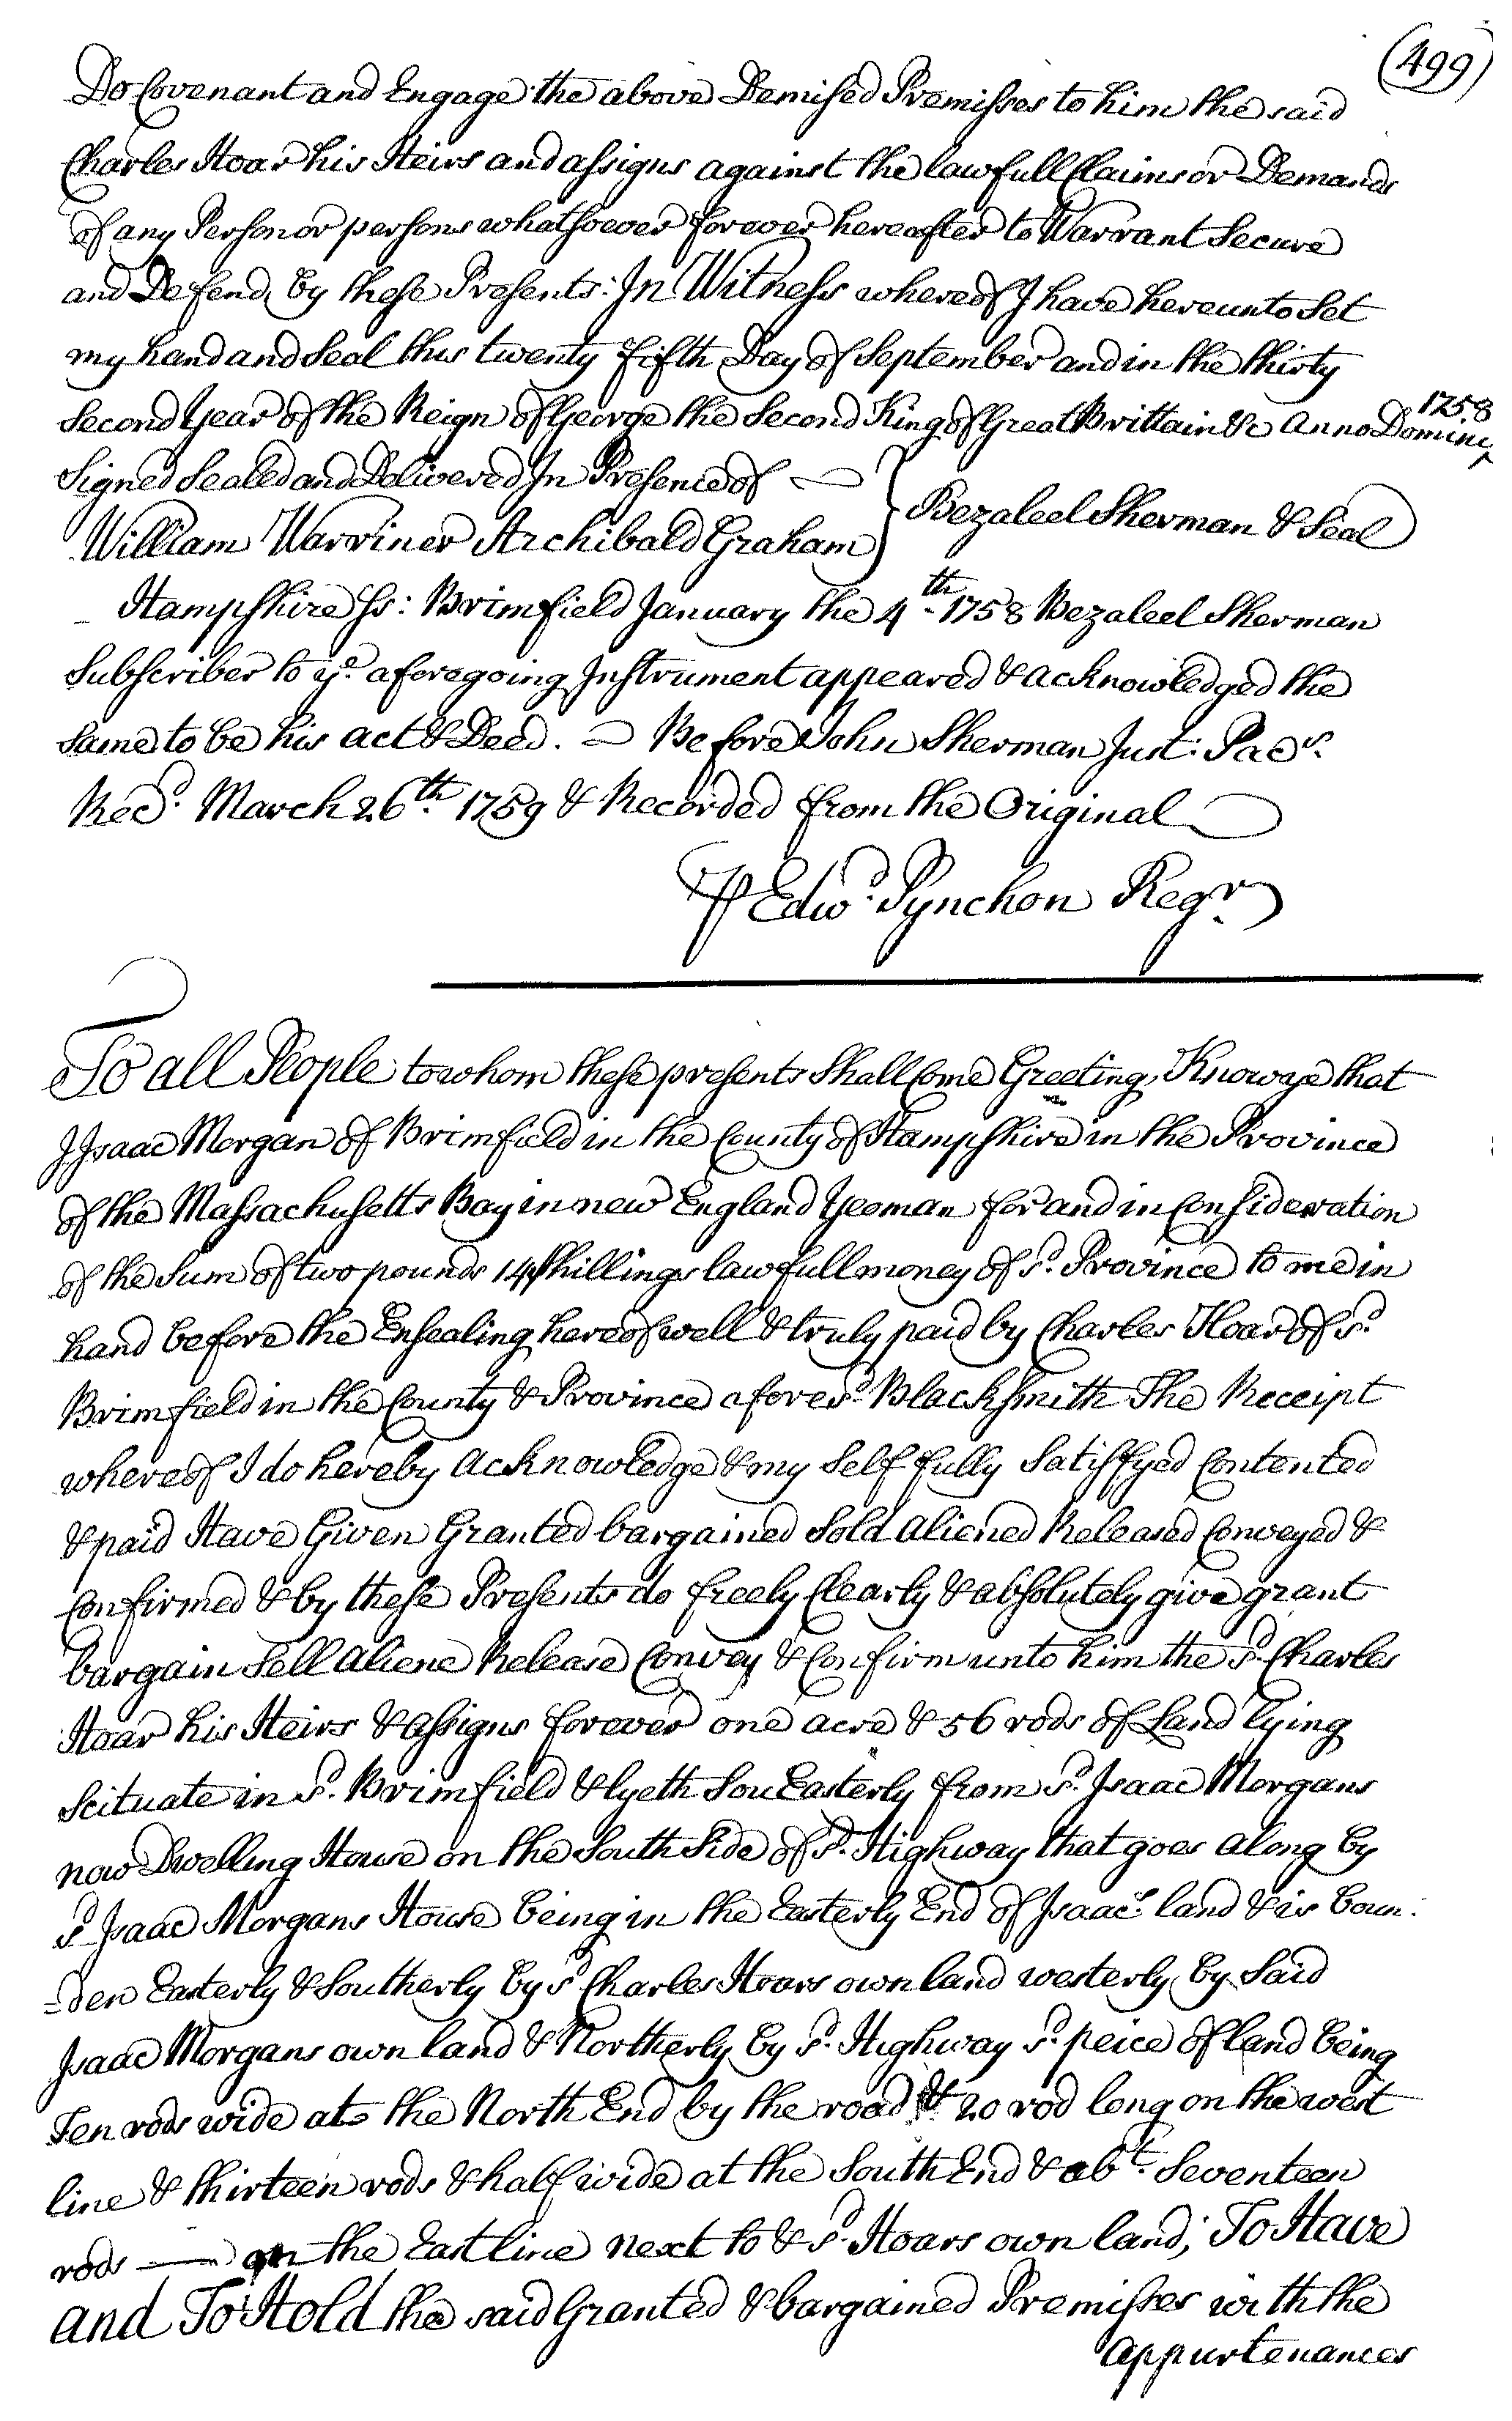 (499)
Do Covenant and Engage the above Demised Premisses to him the said
Charles Hoar his Heirs and assigns against the lawfull Claims or Demands
of any Person or persons whatsoever forever hereafter to Warrant Secure
and Defend by these Presents: In Witness whereof I have hereunto Set
my hand and Seal this twenty fifth Day of September and in the thirty
Second Year of the Reign of George the Second King of Great Brittain &c Anno Domini 1758
Signed Sealed and Delivered In Presence of
Bezaleel Sherman & Seal
William Warriner Archibald Graham
Hampshire Ss: Brimfield January the 4th 1758 Bezaleel Sherman
Subscriber to ye aforegoing Instrument appeared & acknowledged the
Same to be his act & Deed. — Before John Sherman Just: Pacs.
Recd. March 26th. 1759 & Recorded from the Original
P Edwd. Pynchon Regr
To all People to whom these presents Shall Come Greeting, Know ye that
I Isaac Morgan of Brimfield in the County of Hampshire in the Province
of the Massachusetts Bay in new England Yeoman for and in Consideration
of the Sum of two pounds 14 Shillings lawfull money of sd. Province to me in
hand before the Ensealing hereof well & truly paid by Charles Hoar of sd.
Brimfield in the County & Province aforesd. Blacksmith The Receipt
whereof I do hereby acknowledge & my Self fully Satisfyed Contented
& paid Have Given Granted bargained Sold aliened Released Conveyed &
Confirmed & by these Presents do freely Clearly & absolutely give grant
bargain Sell aliene Release Convey & Confirm unto him the sd. Charles
Hoar his Heirs & assigns forever one acre & 56 rods of Land lying
Scituate in sd. Brimfield & lyeth Sou Easterly from sd. Isaac Morgans
now Dwelling House on the South Side of sd. Highway that goes along by
sd Isaac Morgans House being in the Easterly End of Isaacs. land & is boun:
=den Easterly & Southerly by sd Charles Hoars own land westerly by Said
Isaac Morgans own land & Northerly by sd. Highway sd. peice of land being
Ten rods wide at the North End by the road & 20 rod long on the west
line & thirteen rods & half wide at the South End & abt. Seventeen
rods — on the East line next to & sd. Hoars own land; To Have
and To Hold the said Granted & bargained Premisses with the
appurtenances